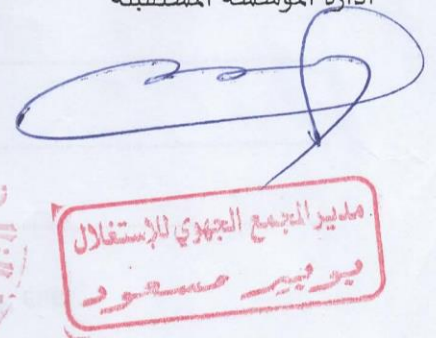 ادارة المؤسسة المستقبلة
مدير المجمع الجهوي للإستغلال
بوبير مسعود